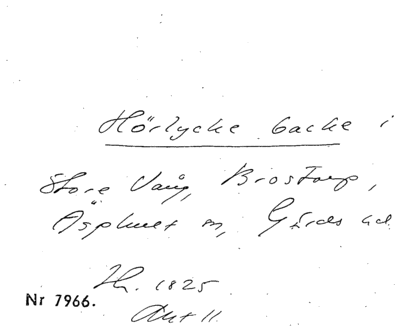 Hörlycke backe i
Store Vång, Brostorp,
Äsphult sn, Gärds hd
Lh. 1825
Akt 11.
Nr 7966.